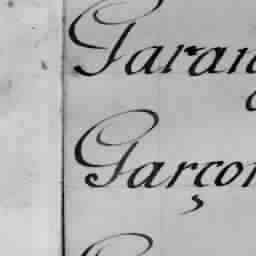 Garan
Garçon